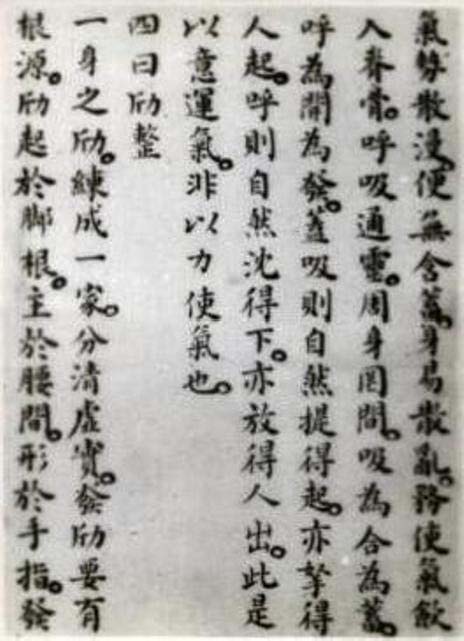 氣勢散漫。便無含蓄。身易散亂。務使氣歛
入脊骨。呼吸通靈。周身罔間。吸為合為蓄。
呼為開為發。蓋吸則自然提得起。亦拏得
人起。呼則自然沈得下。亦放得人出。此是
以意運氣。非以力使氣也。
四曰劤整
一身之劤。練成一家。分清虛實。發劤要有
根源。劤起於脚根。主於腰間。形於手指。發